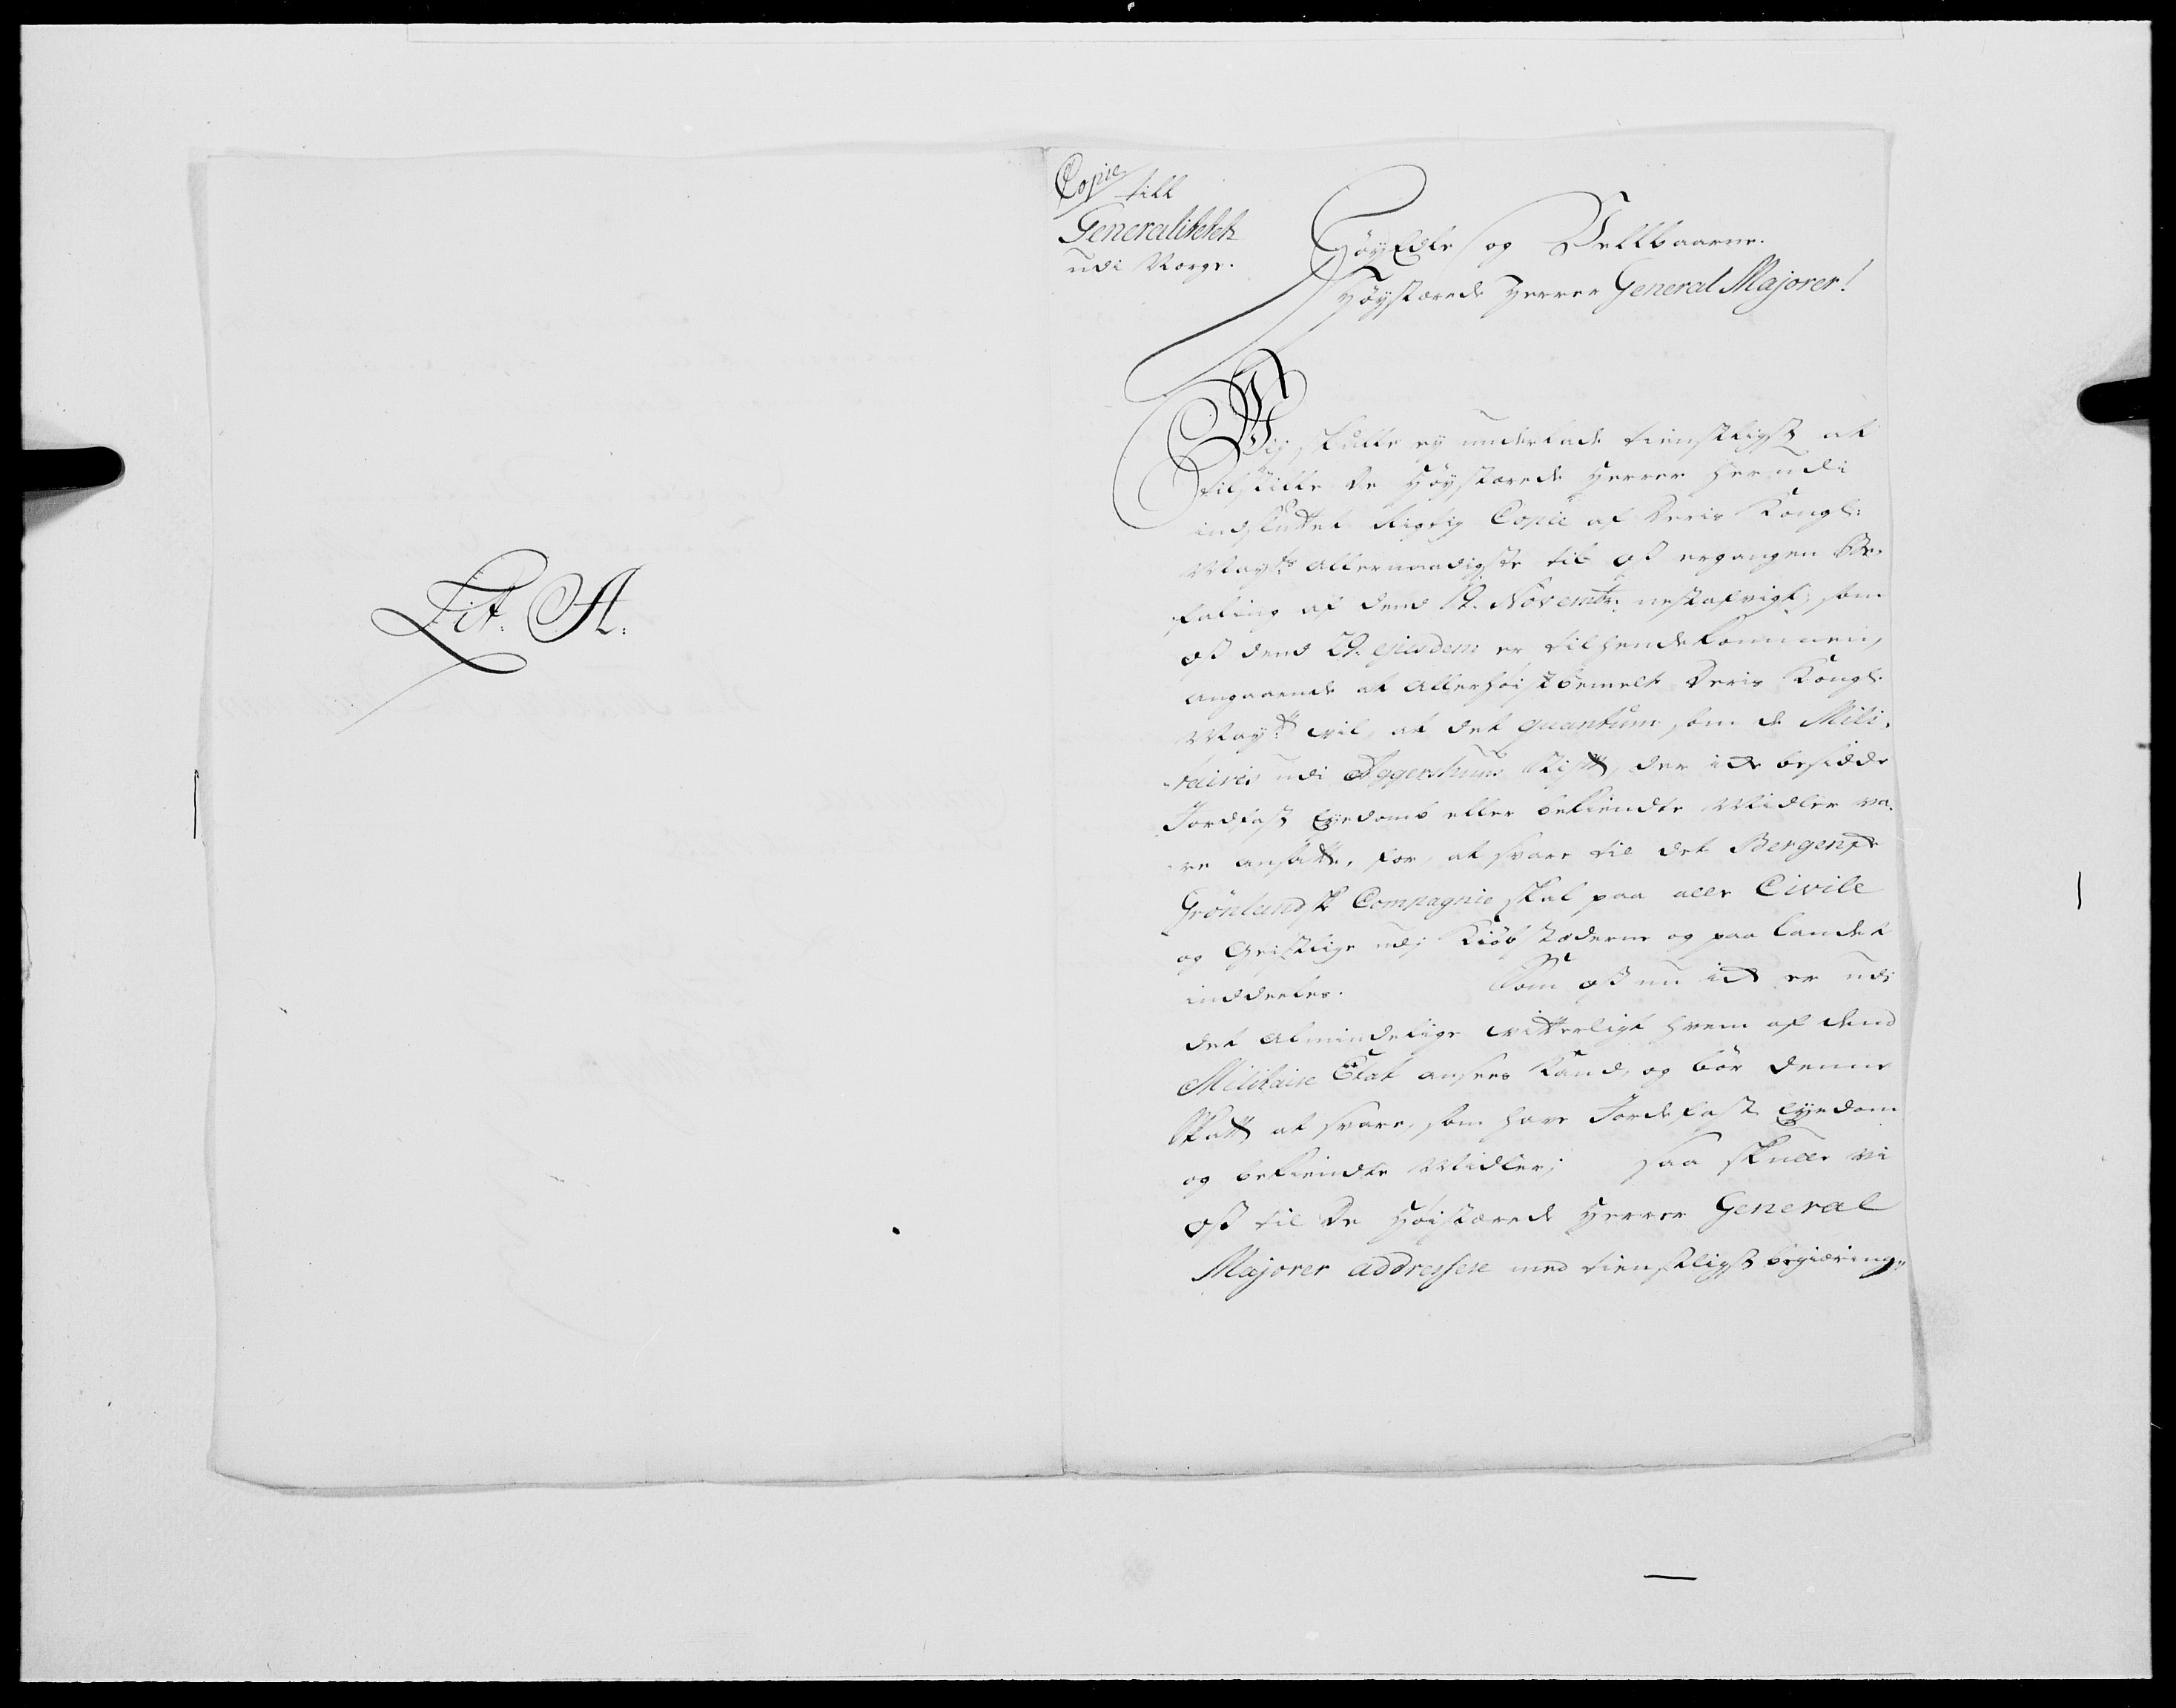 Lit. A.
Copie till
Generalitetet
udi Norge.
HöyEdle og Vellbaarne.
Höystærede Herrer General Majorer!
Vij skulle ey underlade tienstligst at
tilstille De Höystærede Herrer herudi
indsluttet Rigtig Copie af Deris Kongl:
Mayts Allernaadigste til oß ergangen Be-
faling af dend 12. Novembr: nestafvigt, som
oß dend 29. ejusdem er tilhendekommen,
angaaende at Allerhöist bemelte Deris Kongl:
Mayt: vil, at det quantum som de Mili-
tairis udi Aggershuus Stift, der icke besidde
Jordfast Eyedomb eller bekiendte Midler va-
re ansatte, for, at svare til det Bergenske
Grönlandsk Compagnie skal paa alle Civile
og Geistlige udj Kiöbstæderne og paa Landet
inddeeles. Som oß nu icke er udi
det Almindelige vitterligt hvem af dend
Militaire Etat ansees kand, og bör denne
Skatt at svare, som have Jordefast Eyedom
og bekiendte Midler; saa skulle vi
oß til De Höistærede Herrer General
Majorer addressere med tienstligst begiæring,,